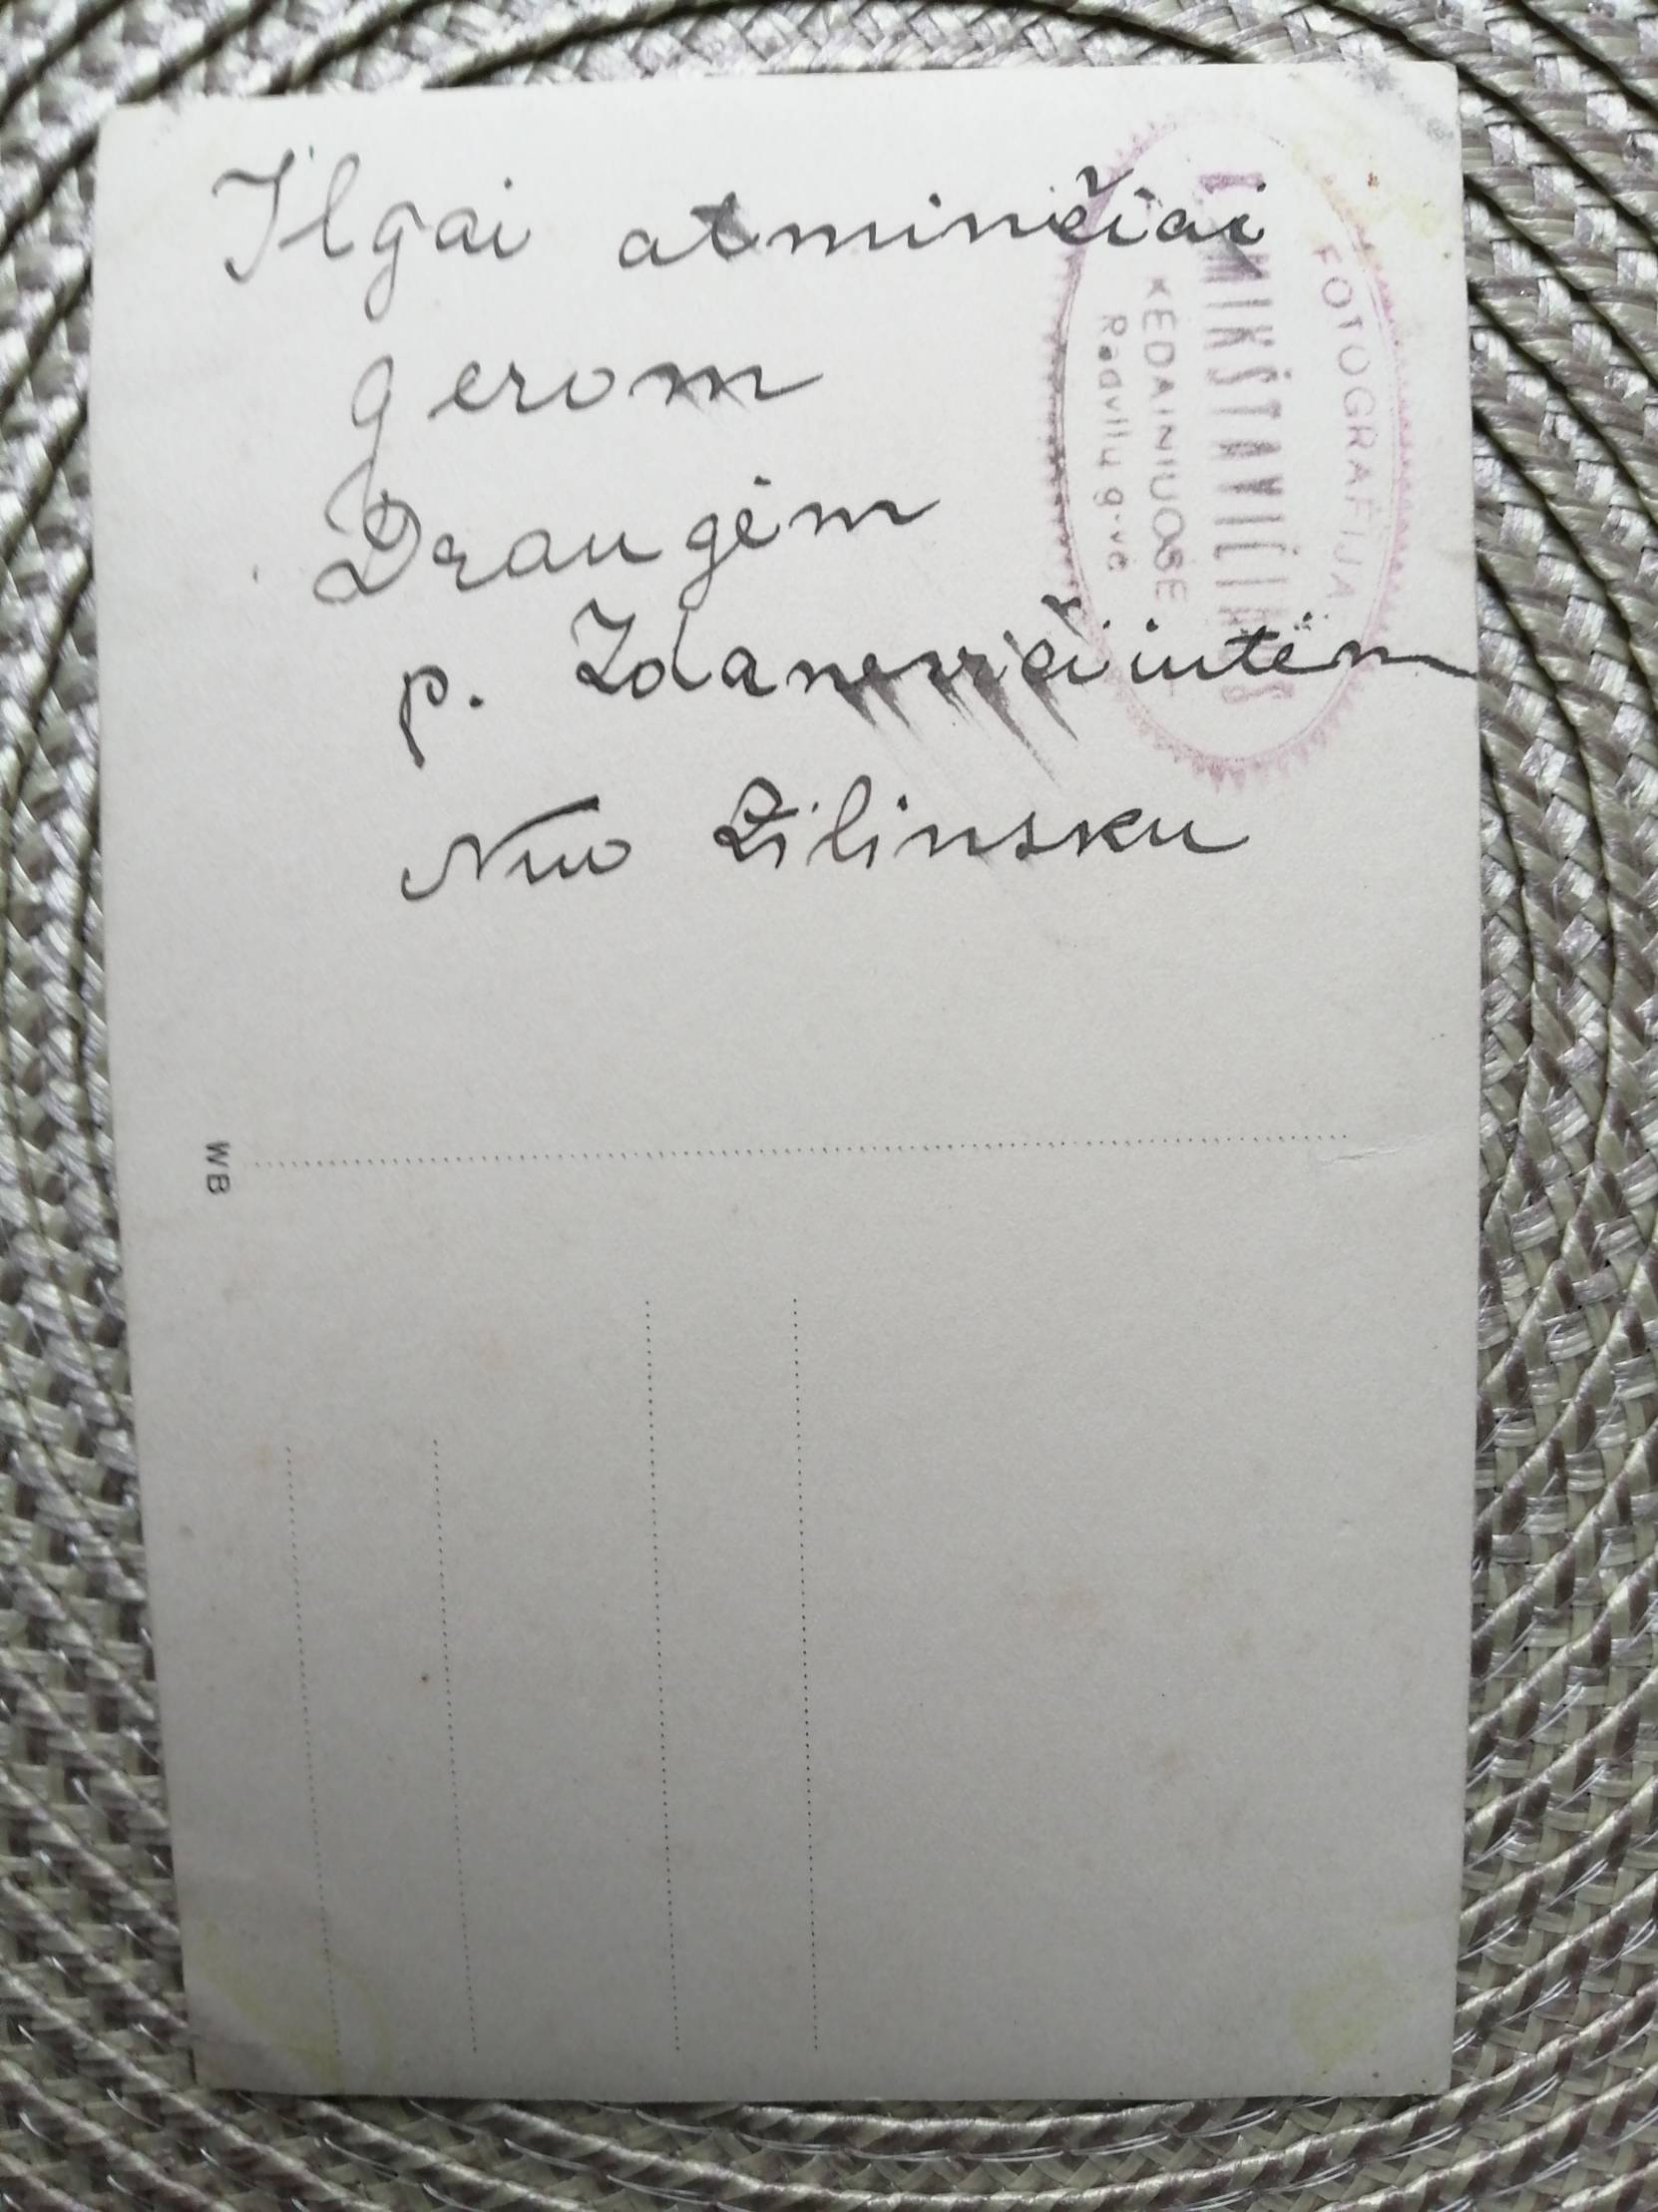 Ilgai atminčiai
gerom
Draugėm
p. Zdanevičiutėm
Nuo Žilinsku
FOTOGRAFIJA
KĖDAINIUOSE
Radvilų g-vė
WB